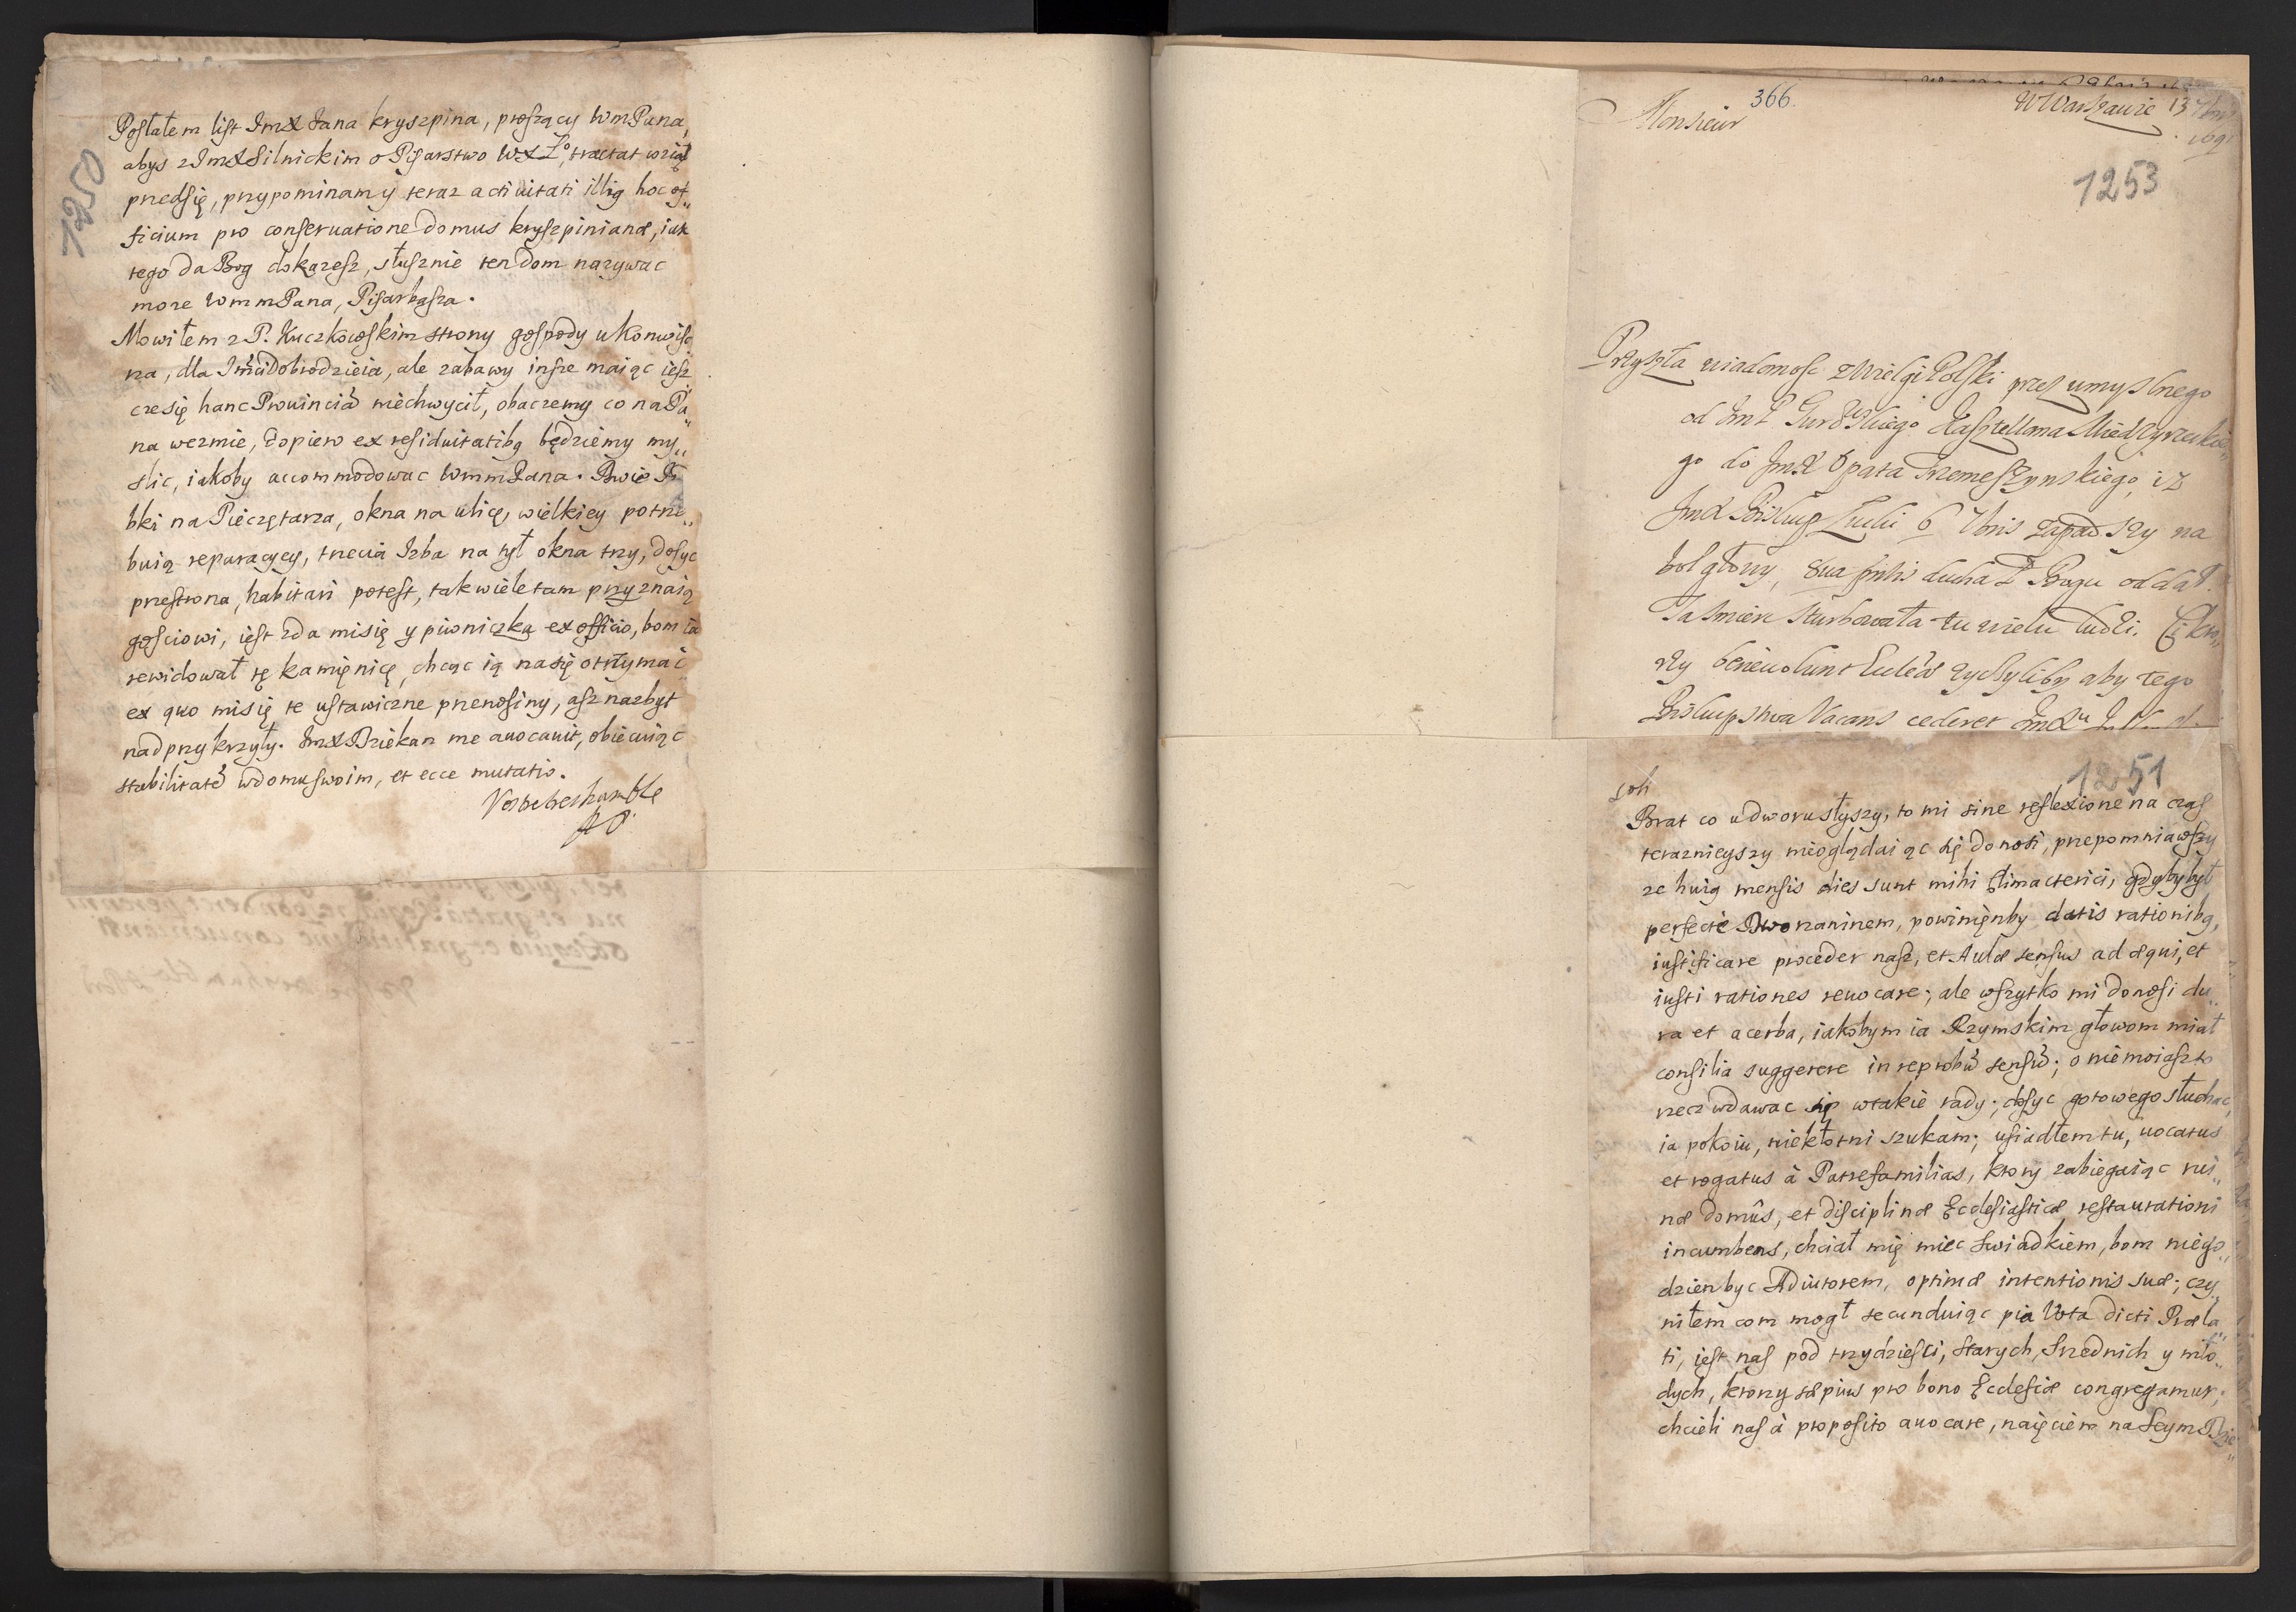 1250
Posłałem list JmX Jana kryszpina, proszący WmPana,
abys z JmX Silnickim o Pisarstwo WXLo, tractat wziął
przedsię, przypominam y teraz activitati illius hoc of„
ficium pro conservatione domus kryszpinianæ, iak
tego da Bog dokazesz, słusznie ten dom nazywac
moze WmmPana, Pisarbasza.
Mowiłem z P. Kuczkowskim strony gospody u Konwis
za, dla Jmci Dobrodzieia, ale zabawy insze maiąc iesz
cze się hanc Prouinciã niechwycił, obaczemy co na Pa„
na wezmie, dopiero ex residuitatibus będziemy my„
slic, iakoby accommodowac WmmPana. Dwie
bki na Pieczętarza, okna na ulicę, wielkiey potrze„
buią reparacyey, trzecia Izba na tył okna trzy, dosyc
przestrona, habitari potest, tak wiele tam przyznaią
gosciowi, iest zda misię y piwniczka ex officio, bom ia
rewidował tę kamięnicę, chcąc ią nasię otrzymac
ex quo misię te ustawiczne przenosiny, asz nazbyt
nadprzykrzyły. JmX Dziekan me auocauit, obiecuiąc
stabilitatẽ wdomu swoim, et ecce mutatio.
366.
Monsieur
W Warszawie 13 7bris
1253
Przyszła wiadomosc z Wielgi Polski przez umyslnego
od JmP kiego Kasztellana Miedzyrzeckie„
go do JmX Opata Trzemeszynskiego, iz
JmX Biskup 6 7bris zapadszy na
bol głowy, ducha P. Bogu oddał.
Ta smierc turbowała tu wielu ludzi. Ci kto„
rzy beneuolunt zyczyliby aby tego
Biskupstwa Vacans cederet JmXu
1251
Brat co u dworu słyszy, to mi sine reflexione na czas
teraznieyszy nieoglądaiąc się donosi, przepomniawszy
ze huius mensis dies sunt mihi climacterici, gdyby był
perfecte Dworzaninem, powinięnby datis rationibus,
iustificare proceder nasz, et Aulæ sensus ad æqui, et
iusti rationes reuocare; ale wszytko mi donosi du„
ra et acerba, iakobym ia Rzymskim głowom miał
consilia suggerere in reprobũ sensũ; o nie moiasz to
rzecz wdawac się wtakie rady; dosyc gotowego słuchac,
ia pokoiu, niekłotni szukam; usiadłem tu, uocatus
et rogatus à Patrefamilias, ktory zabiegaiąc rui„
næ domûs, et disciplinæ Ecclesiasticæ restaurationi
incumbens, chciał mię miec swiadkiem, bom niego„
dzien byc Adiutorem, optimæ intentionis suæ; czy„
niłem com mogł secunduiąc pia Vota dicti Præla„
ti, iest nas pod trzydziesci, starych, srzednich y mło„
dych, ktorzy sæpius pro bono Ecclesiæ congregamur;
chcieli nas à proposito auocare, naięciem na Seym Dzie„